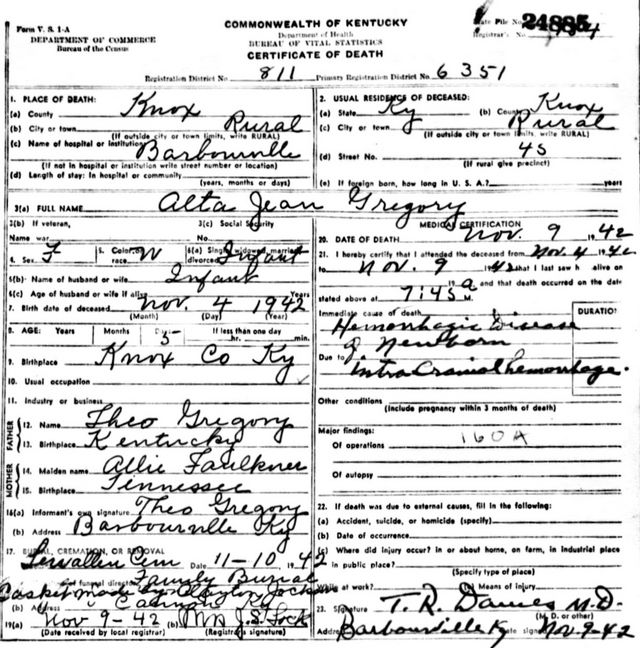 Form V. S. 1-A
DEPARTMENT OF COMMERCE
Bureau of the Census
COMMONWEALTH OF KENTUCKY
Department of Health
BUREAU OF VITAL STATISTICS
CERTIFICATE OF DEATH
State File No. 24885
Registrar's No.
Registration District No. 811 Primary Registration District No. 6351
1. PLACE OF DEATH:
(a) County Knox
(b) City or town Rural
(If outside city or town limits, write RURAL)
(c) Name of hospital or institution Barbourville
(If not in hospital or institution write street number or location)
(d) Length of stay: In hospital or community
(years, months or days)
2. USUAL RESIDENCE OF DECEASED:
(a) State Ky (b) County Knox
(c) City or town Rural
(If outside city or town limits, write RURAL)
(d) Street No. 45
(If rural give precinct)
(e) If foreign born, how long in U. S. A.? years
3(a) FULL NAME Alta Jean Gregory
3(b) If veteran,
Name war
3(c) Social Security
No.
4. Sex F 5. Color or race W 6(a) Single, widowed, married, divorced Infant
6(b) Name of husband or wife Infant
6(c) Age of husband or wife if alive Years
7. Birth date of deceased Nov. 4 1942
(Month) (Day) (Year)
8. AGE: Years Months Days 5 If less than one day
hr. min.
9. Birthplace Knox Co Ky
10. Usual occupation
11. Industry or business
FATHER
12. Name Theo Gregory
13. Birthplace Kentucky
MOTHER
14. Maiden name Allie Faulkner
15. Birthplace Tennessee
16(a) Informant's own signature Theo Gregory
(b) Address Barbourville Ky
17. BURIAL, CREMATION, OR REMOVAL
Lewallen Cem Date 11-10 1942
funeral director Family Burial
Casket made by Clayton Jackson
(b) Address Cannon Ky
19(a) Nov 9-42 (b) Mrs J. S. Lock
(Date received by local registrar) (Registrar's signature)
MEDICAL CERTIFICATION
20. DATE OF DEATH Nov. 9 1942
21. I hereby certify that I attended the deceased from Nov. 4 1942
to Nov. 9 1942 that I last saw h alive on
19 and that death occurred on the date
stated above at 7:45 a m.
Immediate cause of death
DURATION
Hemorrhagic Disease
of Newborn
Due to Intra Cranial hemorrhage.
Other conditions
(Include pregnancy within 3 months of death)
Major findings:
Of operations 160A
Of autopsy
22. If death was due to external causes, fill in the following:
(a) Accident, suicide, or homicide (specify)
(b) Date of occurrence
(c) Where did injury occur? in or about home, on farm, in industrial place
in public place
(Specify type of place)
While at work? (e) Means of injury
23. Signature T. R. Davies M.D.
(M. D. or other)
Address Barbourville Ky Date signed Nov. 9-42